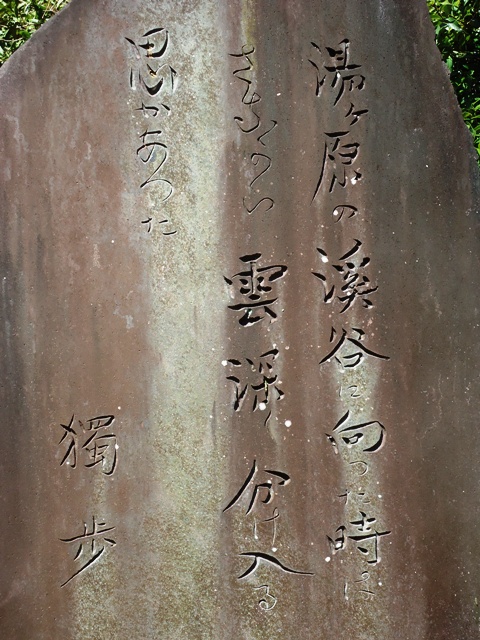 湯ヶ原の渓谷に向つた時は
さながら雲深く分け入る
思があつた
獨歩